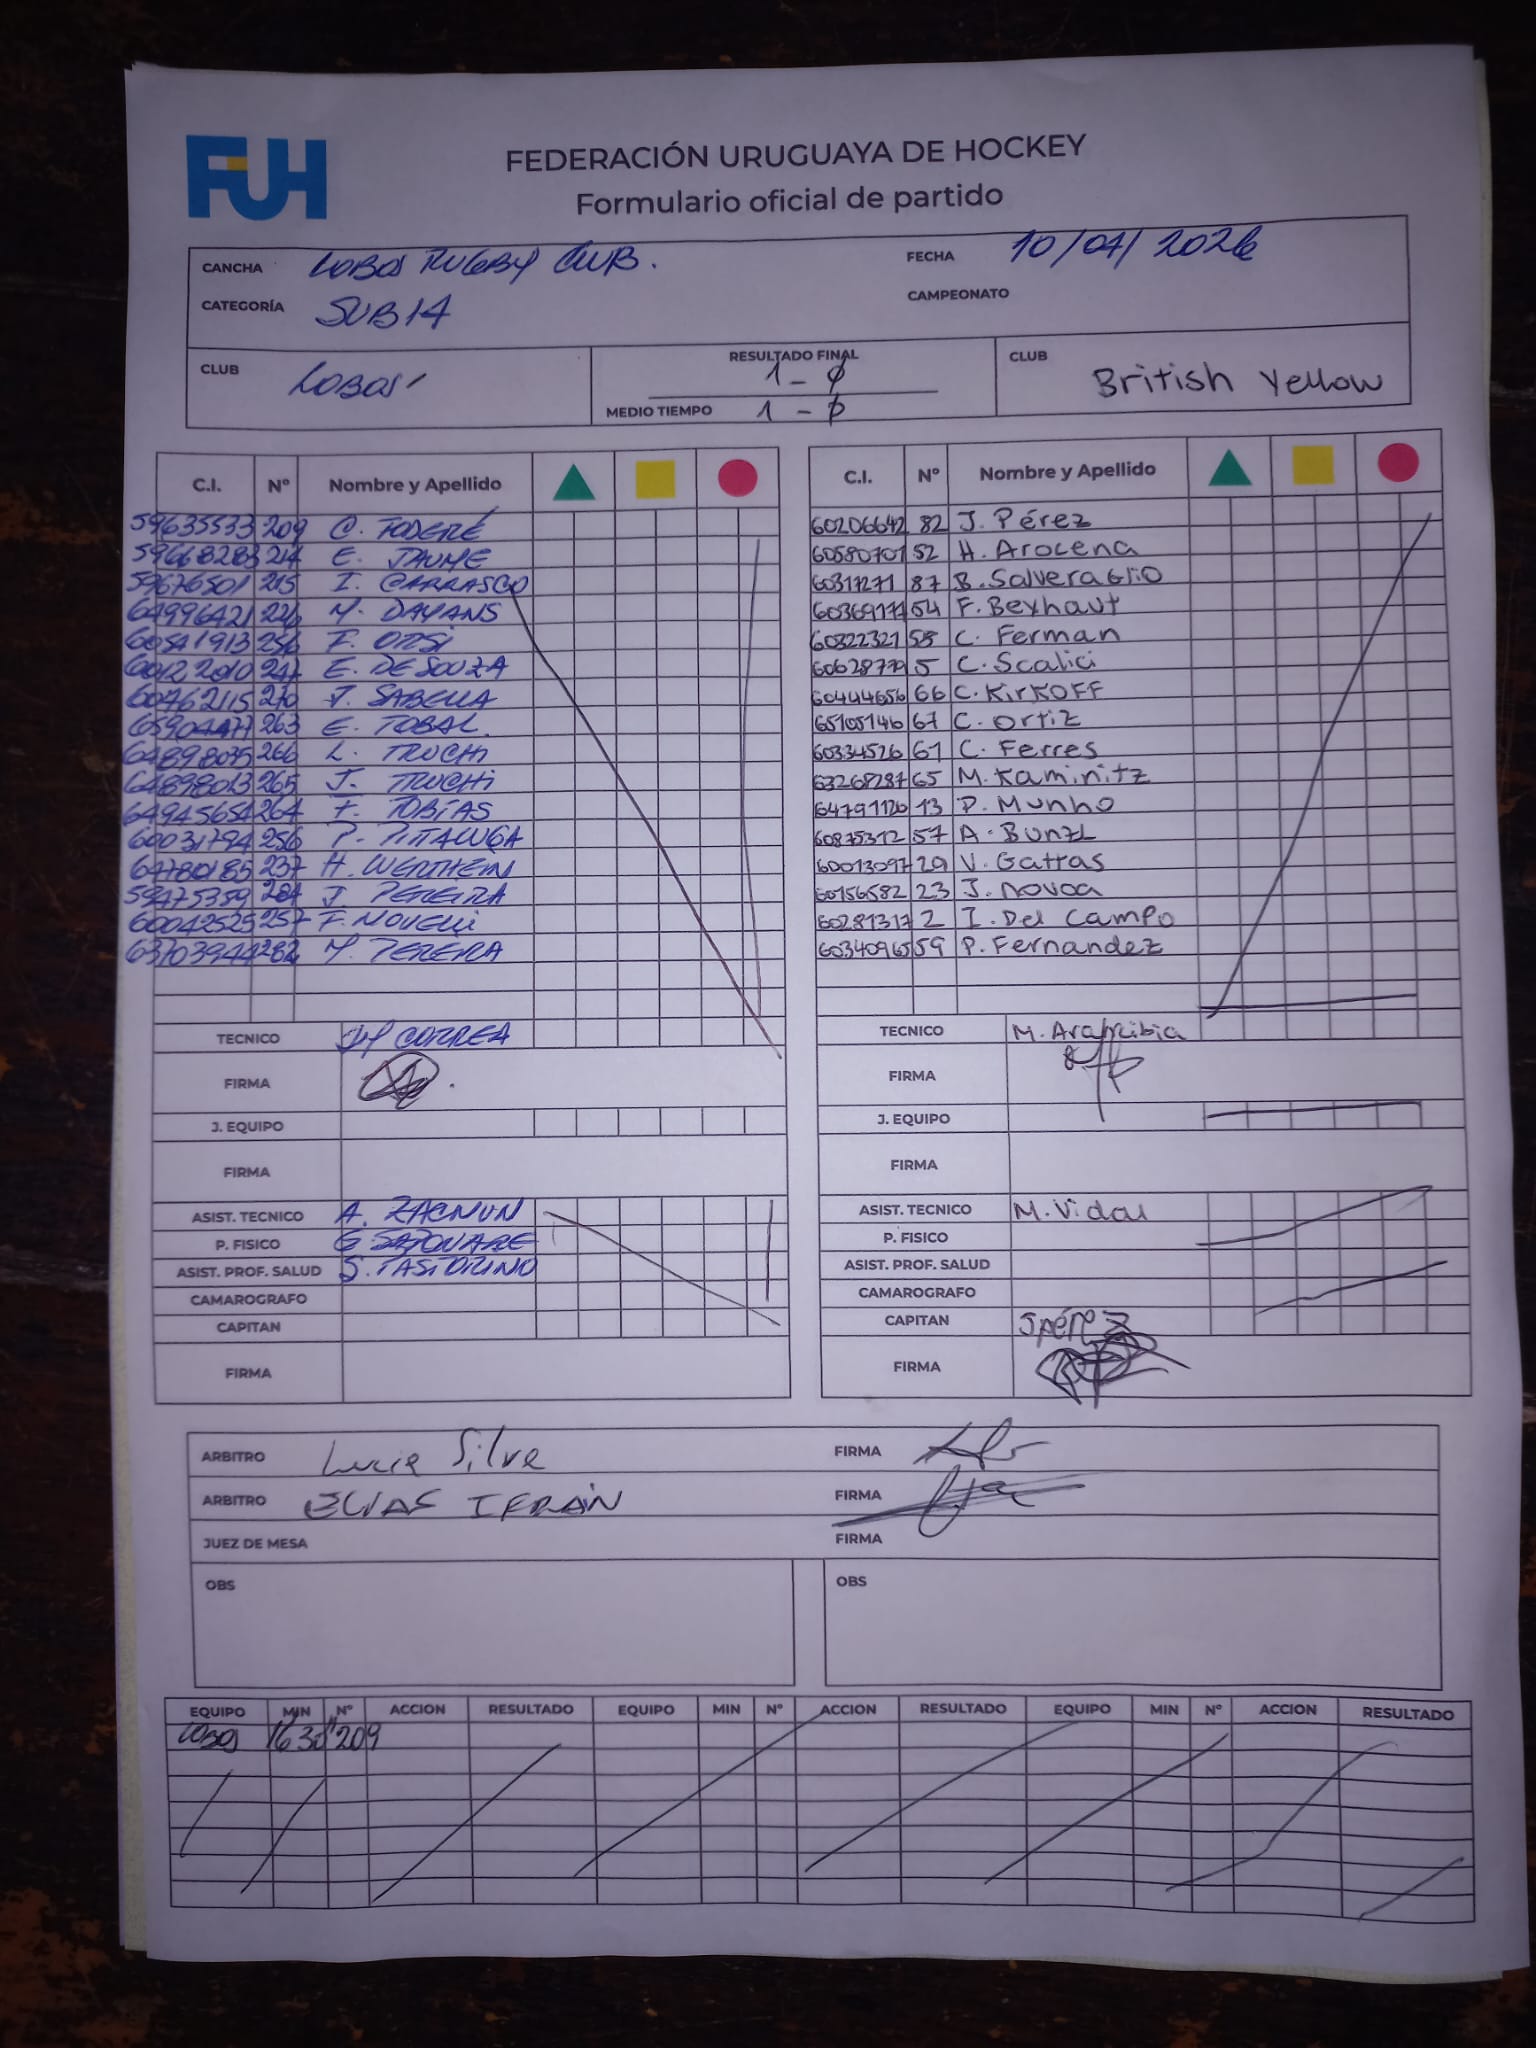 FUH
FEDERACIÓN URUGUAYA DE HOCKEY
Formulario oficial de partido
CANCHA LOBOS RUGBY CLUB. FECHA 10/04/2026
CATEGORÍA SUB14 CAMPEONATO
CLUB LOBOS RESULTADO FINAL 1 - 0 CLUB British Yellow
MEDIO TIEMPO 1 - 0
C.I. Nº Nombre y Apellido C.I. Nº Nombre y Apellido
59635533 209 C. FODERÉ 60206642 82 J. Pérez
59668283 214 E. JAUME 60580701 52 H. Arocena
59676501 215 I. CARRASCO 60317271 87 B. Salveraglio
64996421 226 M. DAYANS 60369177 54 F. Beyhaut
60541913 256 F. ORSI 60322321 58 C. Ferman
60122010 247 E. DE SOUZA 60628779 5 C. Scalici
60762115 270 J. SABELLA 60444656 66 C. KirKOFF
65904477 263 E. TOBAL. 65105146 67 C. Ortiz
64898035 266 L. TRUCHI 60334526 61 C. Ferres
64898013 265 J. TRUCHI 63268287 65 M. Kaminitz
64945654 264 F. TOBÍAS 64791120 13 P. Munho
60031794 256 P. PITALUGA 60875312 57 A. BUNZL
64780185 237 H. WERTHEIN 60013097 29 V. Gattas
59475359 284 J. PEREIRA 60156582 23 J. novoa
60042525 257 F. NOVELLI 60281317 2 I. Del Campo
63703944 282 M. PEREIRA 60340965 59 P. Fernandez
TECNICO CORREA TECNICO M. Arambibia
FIRMA FIRMA
J. EQUIPO J. EQUIPO
FIRMA FIRMA
ASIST. TECNICO A. ZACNUN ASIST. TECNICO M. Vidal
P. FISICO G. SAPONARE P. FISICO
ASIST. PROF. SALUD S. PASTORINO ASIST. PROF. SALUD
CAMAROGRAFO CAMAROGRAFO
CAPITAN CAPITAN J Pérez
FIRMA FIRMA
ARBITRO Lucia Silva FIRMA
ARBITRO ELIAS IFRÁN FIRMA
JUEZ DE MESA FIRMA
OBS OBS
EQUIPO MIN Nº ACCION RESULTADO EQUIPO MIN Nº ACCION RESULTADO EQUIPO MIN Nº ACCION RESULTADO
LOBOS 16'30" 209